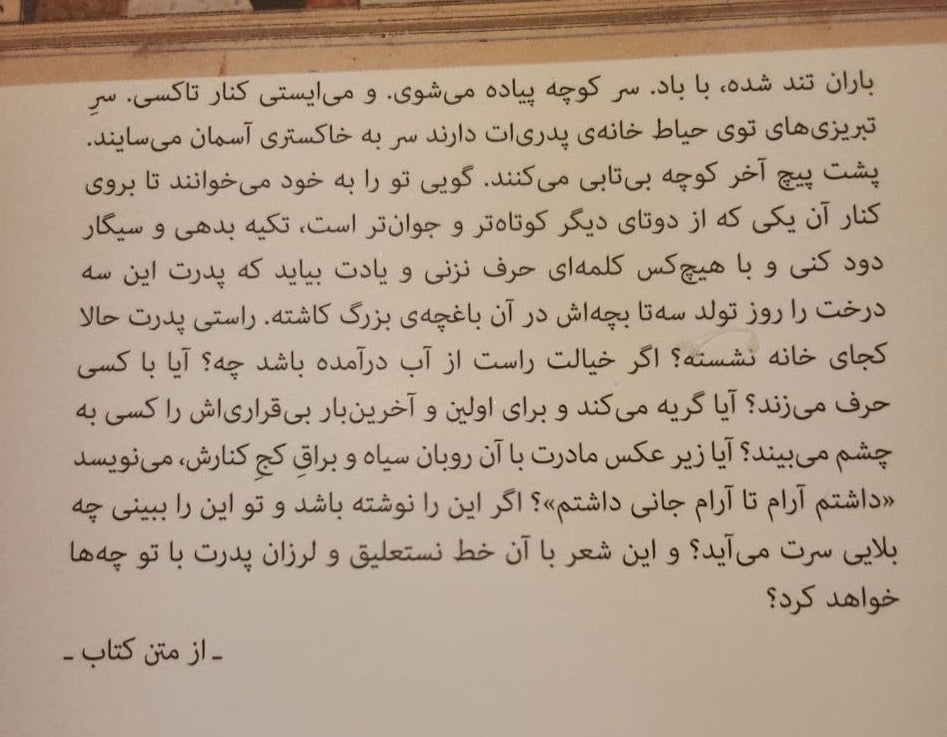 باران تند شده، با باد. سر کوچه پیاده می‌شوی. و می‌ایستی کنار تاکسی. سرِ
تبریزی‌های توی حیاط خانه‌ی پدری‌ات دارند سر به خاکستری آسمان می‌سایند.
پشت پیچ آخر کوچه بی‌تابی می‌کنند. گویی تو را به خود می‌خوانند تا بروی
کنار آن یکی که از دوتای دیگر کوتاه‌تر و جوان‌تر است، تکیه بدهی و سیگار
دود کنی و با هیچ‌کس کلمه‌ای حرف نزنی و یادت بیاید که پدرت این سه
درخت را روز تولد سه‌تا بچه‌اش در آن باغچه‌ی بزرگ کاشته. راستی پدرت حالا
کجای خانه نشسته؟ اگر خیالت راست از آب درآمده باشد چه؟ آیا با کسی
حرف می‌زند؟ آیا گریه می‌کند و برای اولین و آخرین‌بار بی‌قراری‌اش را کسی به
چشم می‌بیند؟ آیا زیر عکس مادرت با آن روبان سیاه و براقِ کجِ کنارش، می‌نویسد
«داشتم آرام تا آرام جانی داشتم»؟ اگر این را نوشته باشد و تو این را ببینی چه
بلایی سرت می‌آید؟ و این شعر با آن خط نستعلیق و لرزان پدرت با تو چه‌ها
خواهد کرد؟
ـ از متن کتاب ـ